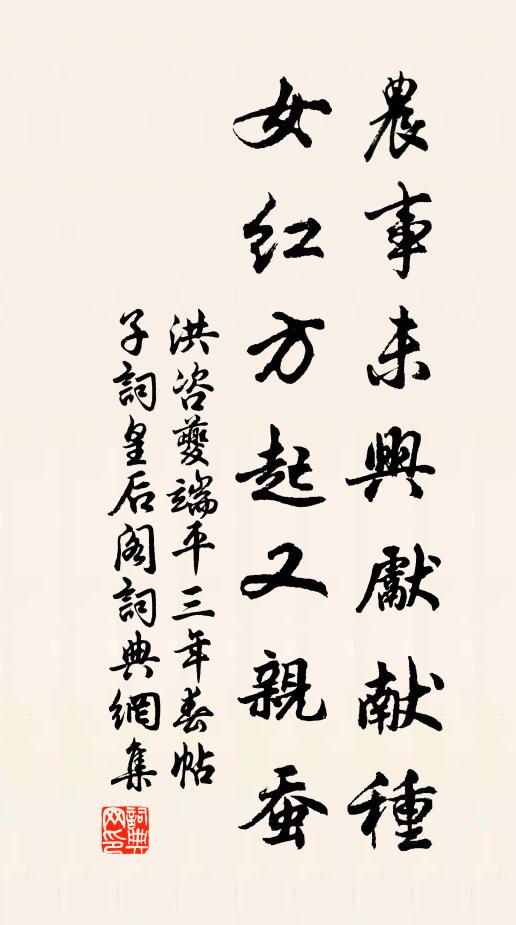 農事未興獻献種
女红方起又親蚕
洪咨夔端平三年春帖
子詞皇后阁詞典網集
詞典网印